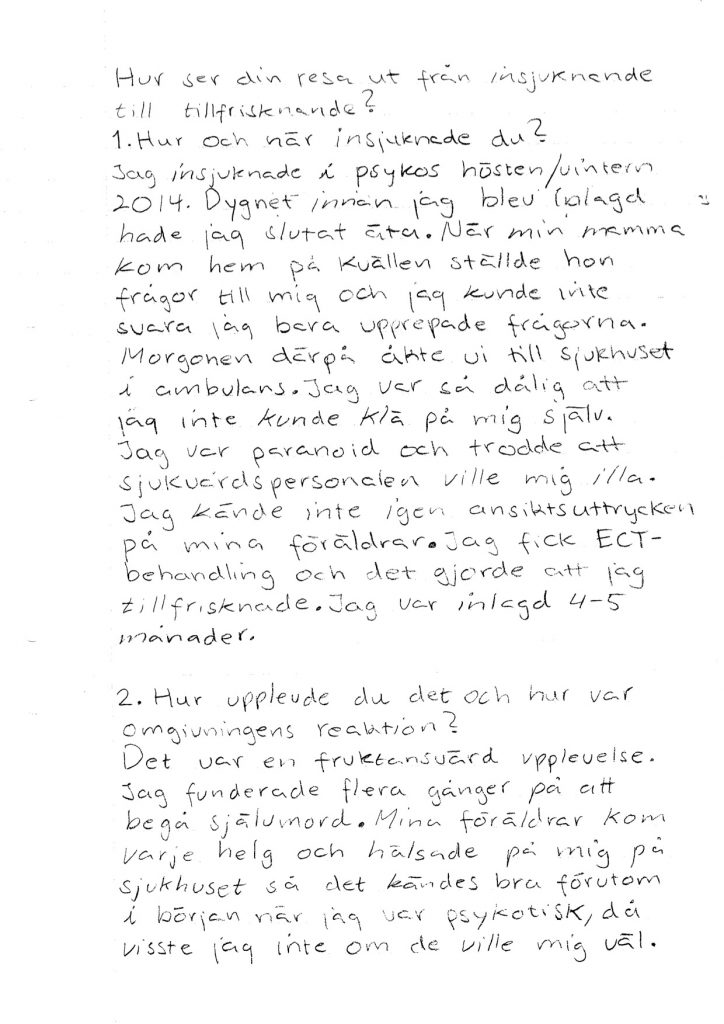 Hur ser din resa ut från insjuknande
till tillfrisknande?
1. Hur och när insjuknade du?
Jag insjuknade i psykos hösten/vintern
2014. Dygnet innan jag blev inlagd
hade jag slutat äta. När min mamma
kom hem på kvällen ställde hon
frågor till mig och jag kunde inte
svara jag bara upprepade frågorna.
Morgonen därpå åkte vi till sjukhuset
i ambulans. Jag var så dålig att
jag inte kunde klä på mig själv.
Jag var paranoid och trodde att
sjukvårdspersonalen ville mig illa.
Jag kände inte igen ansiktsuttrycken
på mina föräldrar. Jag fick ECT-
behandling och det gjorde att jag
tillfrisknade. Jag var inlagd 4-5
månader.
2. Hur upplevde du det och hur var
omgivningens reaktion?
Det var en fruktansvärd upplevelse.
Jag funderade flera gånger på att
begå självmord. Mina föräldrar kom
varje helg och hälsade på mig på
sjukhuset så det kändes bra förutom
i början när jag var psykotisk, då
visste jag inte om de ville mig väl.